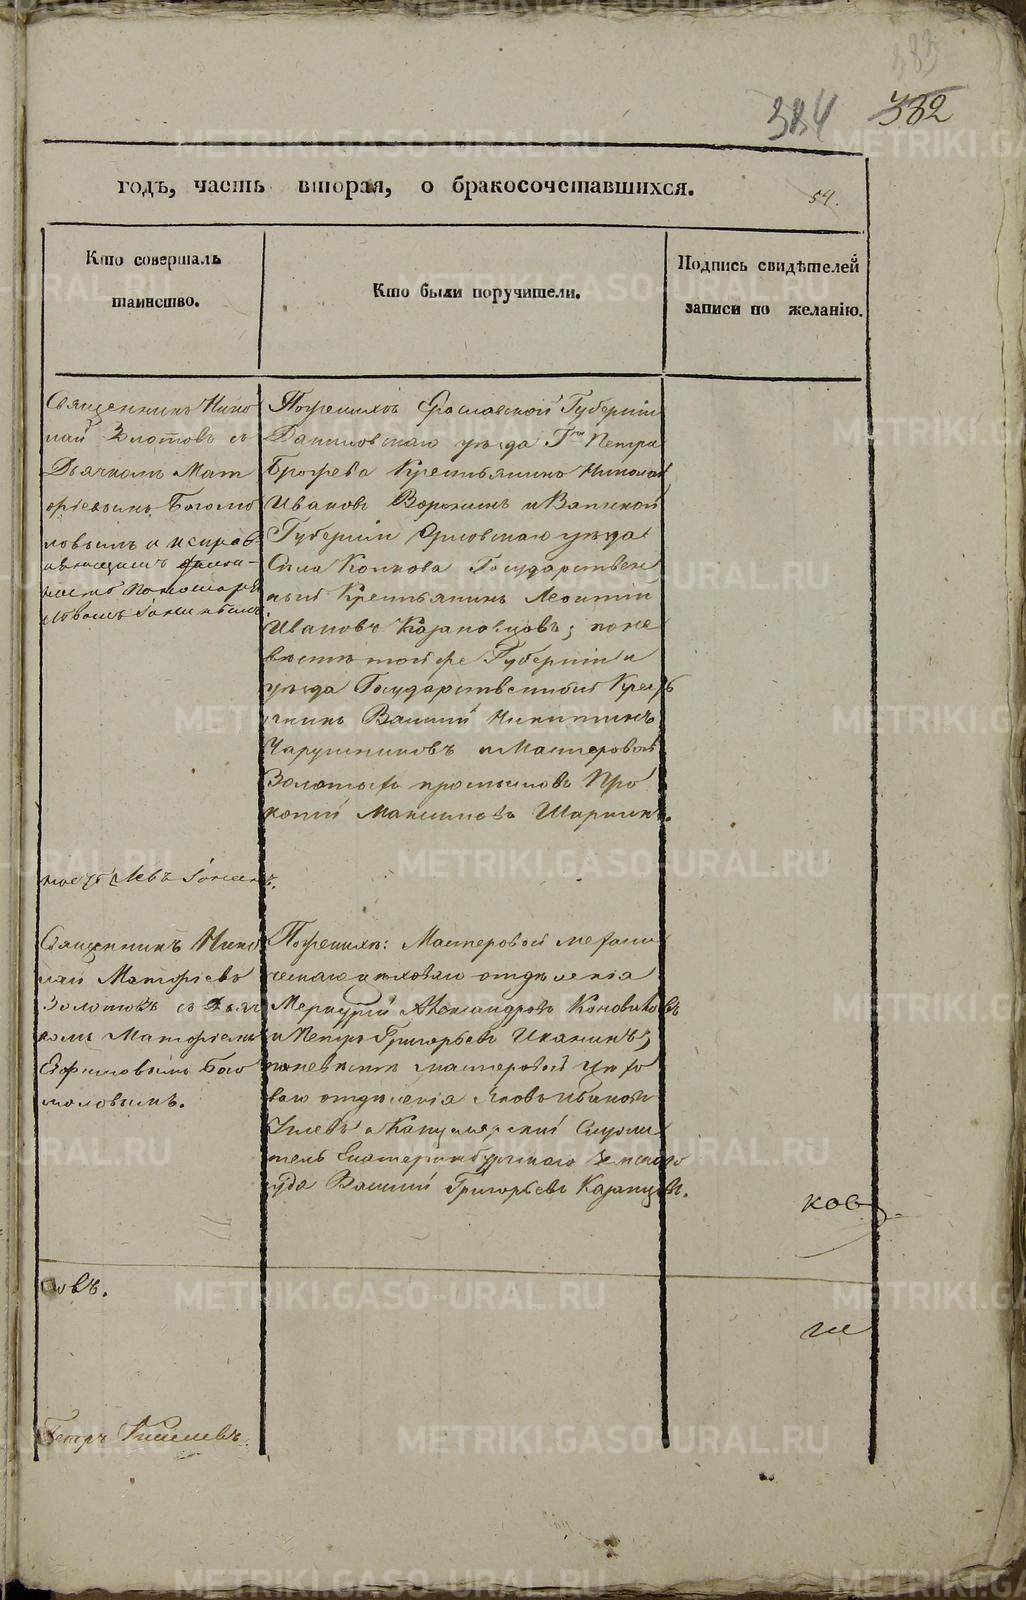 383
384 332
годъ, часть вторая, о бракосочетавшихся.
54.
Кто совершалъ таинство.
Кто были поручители.
Подпись свидѣтелей записи по желанію.
Священникъ Нико
лай Золотовъ съ
Дьячкомъ Мат
ѳіевымъ Богомо
ловымъ и исправ-
ляющимъ
Пономаря
Львомъ
Поженихѣ Ярославской Губерніи
Даниловскаго уѣзда Гна Петра
Крестьянинъ Николай
Ивановъ Воронинъ и Вятской
Губерніи Орловскаго уѣзда
Села Колкова Государствен
ный Крестьянинъ Леонтій
Ивановъ; поне
вѣстѣ той же Губерніи и
уѣзда Государственный Кресть
янинъ Василій Никитинъ
Чарушниковъ и Мастеровой
Золотыхъ промысловъ Про
копій Максимовъ Шаринъ.
Левъ
Священникъ Нико
лай Матѳіевъ
Золотовъ съ Дьяч
комъ Матѳіемъ
Ефимовымъ Бого
моловымъ.
Поженихѣ: Мастеровой механи
ческаго цеховаго отдѣленія
Меркурій Александровъ Коноваловъ
и Петръ Григорьевъ Иканинъ;
поневѣстѣ мастеровой цехо
ваго отдѣленія Яковъ Ивановъ
и Канцелярскій Служи
тель Екатеринбургскаго Земскаго
суда Василій Григорьевъ
ков
ловъ.
ги
Петръ Киселевъ.
METRIKI.GASO-URAL.RU